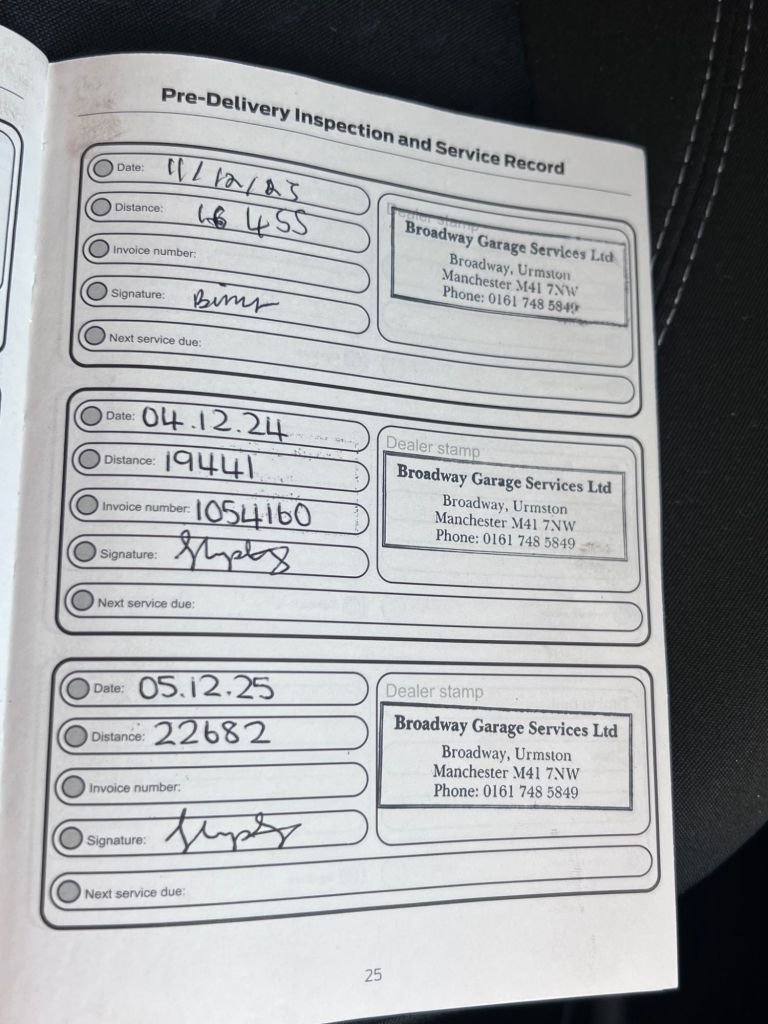 Pre-Delivery Inspection and Service Record
Date: 11/12/23
Distance: 16 455
Invoice number:
Signature:
Next service due:
Dealer stamp
Broadway Garage Services Ltd
Broadway, Urmston
Manchester M41 7NW
Phone: 0161 748 5849
Date: 04.12.24
Distance: 19441
Invoice number: 1054160
Signature:
Next service due:
Dealer stamp
Broadway Garage Services Ltd
Broadway, Urmston
Manchester M41 7NW
Phone: 0161 748 5849
Date: 05.12.25
Distance: 22682
Invoice number:
Signature:
Next service due:
Dealer stamp
Broadway Garage Services Ltd
Broadway, Urmston
Manchester M41 7NW
Phone: 0161 748 5849
25